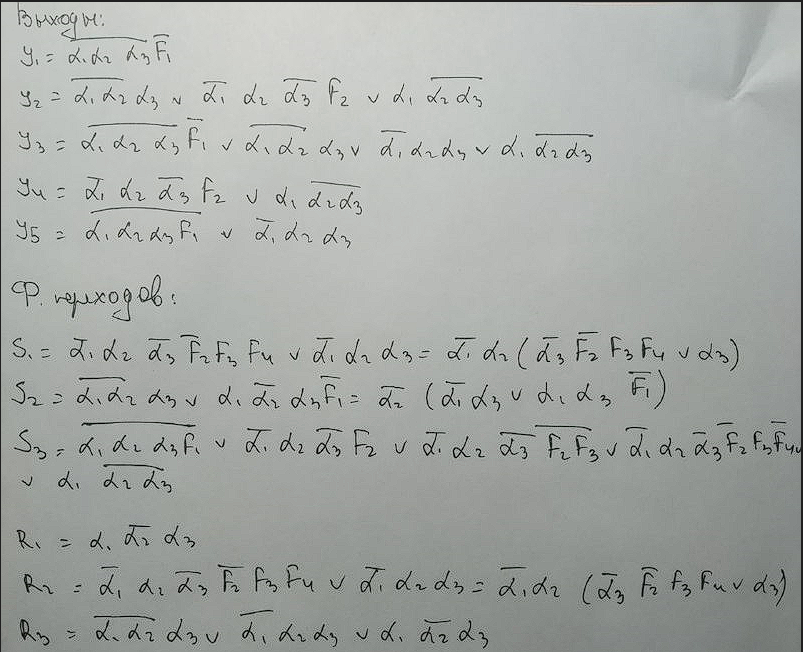 Выходы:
y₁ = \overline{α₁α₂ α₃} \overline{F₁}
y₂ = \overline{α₁ α₂} α₃ ∨ \overline{α₁} α₂ \overline{α₃} F₂ ∨ α₁ \overline{α₂ α₃}
y₃ = \overline{α₁ α₂ α₃} \overline{F₁} ∨ \overline{α₁ α₂} α₃ ∨ \overline{α₁} α₂ α₃ ∨ α₁ \overline{α₂ α₃}
y₄ = \overline{α₁} α₂ \overline{α₃} F₂ ∨ α₁ \overline{α₂ α₃}
y₅ = \overline{α₁ α₂ α₃ F₁} ∨ \overline{α₁} α₂ α₃
Ф. переходов:
S₁ = \overline{α₁} α₂ \overline{α₃} \overline{F₂} F₃ F₄ ∨ \overline{α₁} α₂ α₃ = \overline{α₁} α₂ (\overline{α₃} \overline{F₂} F₃ F₄ ∨ α₃)
S₂ = \overline{α₁ α₂} α₃ ∨ α₁ \overline{α₂} α₃ \overline{F₁} = \overline{α₂} (\overline{α₁} α₃ ∨ α₁ α₃ \overline{F₁})
S₃ = \overline{α₁ α₂ α₃ F₁} ∨ \overline{α₁} α₂ \overline{α₃} F₂ ∨ \overline{α₁} α₂ \overline{α₃ F₂ F₃} ∨ \overline{α₁} α₂ \overline{α₃} \overline{F₂} F₃ \overline{F₄} ∨
∨ α₁ \overline{α₂ α₃}
R₁ = α₁ \overline{α₂} α₃
R₂ = \overline{α₁} α₂ \overline{α₃} \overline{F₂} F₃ F₄ ∨ \overline{α₁} α₂ α₃ = \overline{α₁} α₂ (\overline{α₃} \overline{F₂} F₃ F₄ ∨ α₃)
R₃ = \overline{α₁ α₂} α₃ ∨ \overline{α₁} α₂ α₃ ∨ α₁ \overline{α₂} α₃